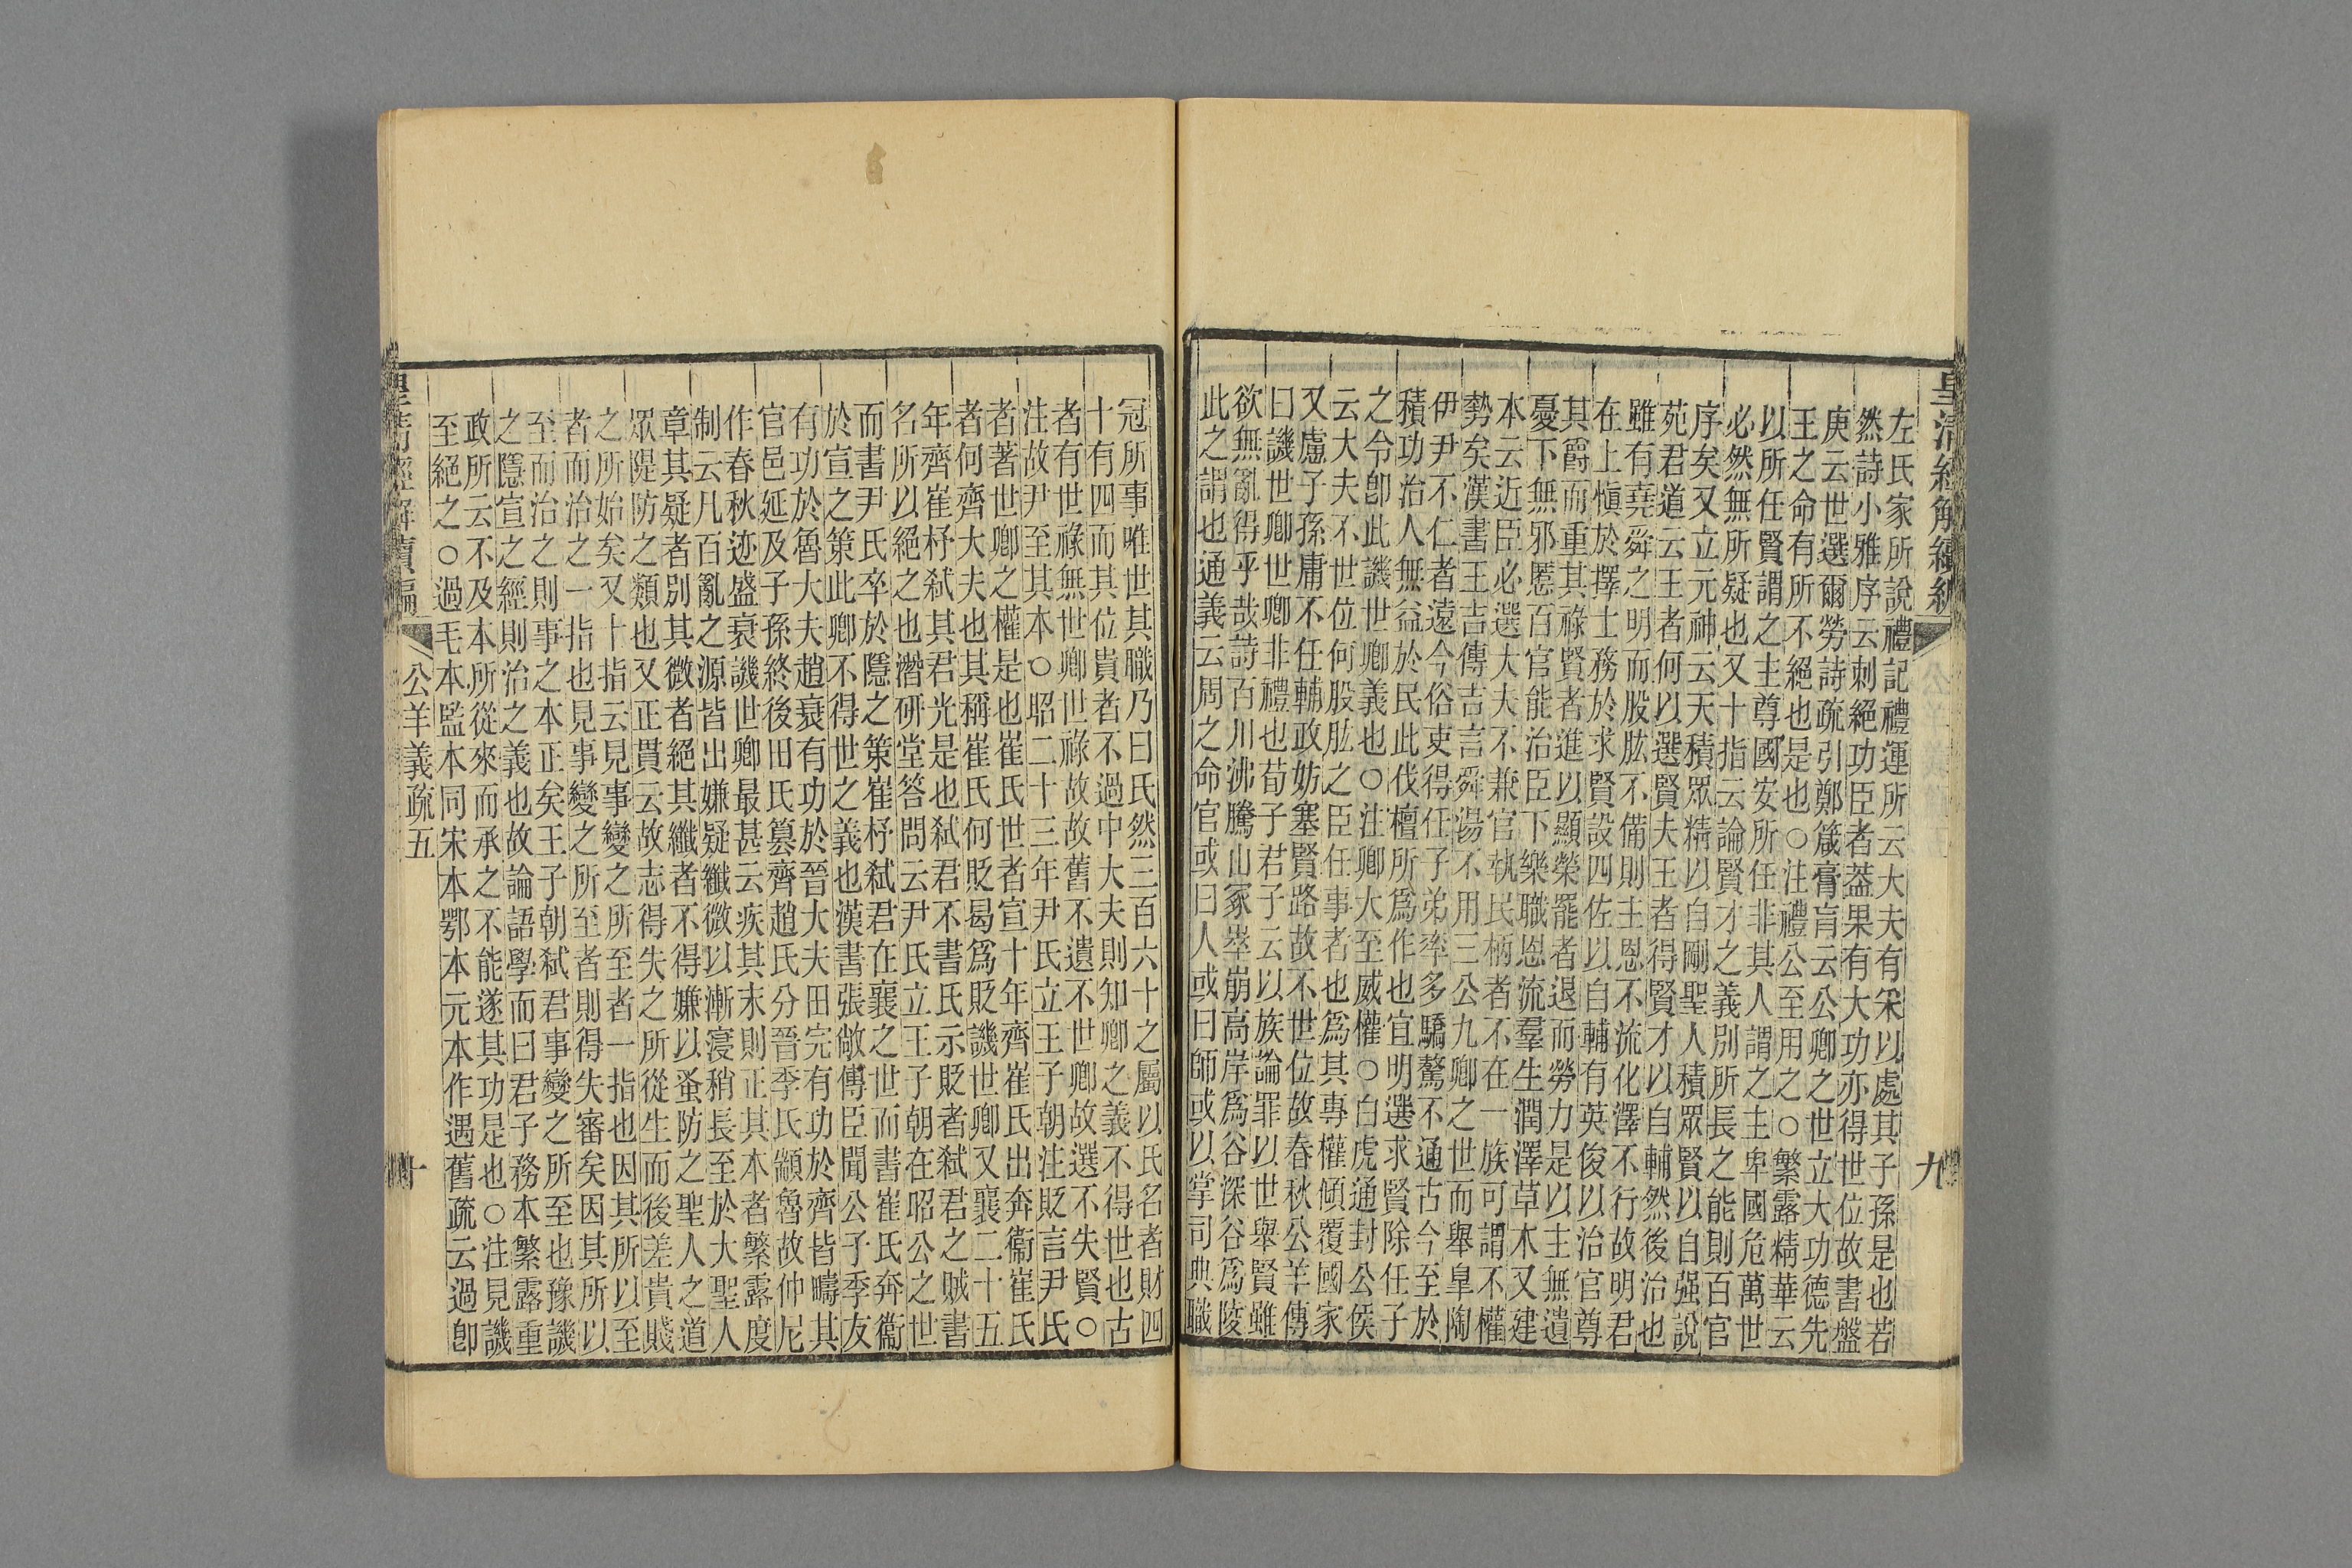 皇清經解續編
九
左氏家所說禮記禮運所云大夫有宷以處其子孫是也若
然詩小雅序云刺絕功臣者葢果有大功亦得世位故書盤
庚云世選爾勞詩疏引鄭箴膏肓云公卿之世立大功德先
王之命有所不絕也是也○注禮公至用之○繁露精華云
以所任賢謂之主尊國安所任非其人謂之主卑國危萬世
必然無所疑也又十指云論賢才之義別所長之能則百官
序矣又立元神云天積眾精以自剛聖人積眾賢以自强說
苑君道云王者何以選賢夫王者得賢才以自輔然後治也
雖有堯舜之明而股肱不備則主恩不流化澤不行故明君
在上愼於擇士務於求賢設四佐以自輔有英俊以治官尊
其爵而重其祿賢者進以顯榮罷者退而勞力是以主無遺
憂下無邪慝百官能治臣下樂職恩流羣生潤澤草木又建
本云近臣必選大夫不兼官執民柄者不在一族可謂不權
勢矣漢書王吉傳吉言舜湯不用三公九卿之世而舉皐陶
伊尹不仁者遠今俗吏得任子弟率多驕驁不通古今至於
積功治人無益於民此伐檀所爲作也宜明選求賢除任子
之令卽此譏世卿義也○注卿大至威權○白虎通封公侯
云大夫不世位何股肱之臣任事者也爲其專權傾覆國家
又慮子孫庸不任輔政妨塞賢路故不世位故春秋公羊傳
曰譏世卿世卿非禮也荀子君子云以族論罪以世舉賢雖
欲無亂得乎哉詩百川沸騰山冢崒崩高岸爲谷深谷爲陵
此之謂也通義云周之命官或曰人或曰師或以掌司典職
冠所事唯世其職乃曰氏然三百六十之屬以氏名者財四
十有四而其位貴者不過中大夫則知卿之義不得世也古
者有世祿無世卿世祿故故舊不遺不世卿故選不失賢○
注故尹至其本○昭二十三年尹氏立王子朝注貶言尹氏
者著世卿之權是也崔氏世者宣十年齊崔氏出奔衞崔氏
者何齊大夫也其稱崔氏何貶曷爲貶譏世卿又襄二十五
年齊崔杼弒其君光是也弒君不書氏示貶者弒君之賊書
名所以絕之也潛研堂答問云尹氏立王子朝在昭公之世
而書尹氏卒於隱之策崔杼弒君在襄之世而書崔氏奔衞
於宣之策此卿不得世之義也漢書張敞傳臣聞公子季友
有功於魯大夫趙衰有功於晉大夫田完有功於齊皆疇其
官邑延及子孫終後田氏篡齊趙氏分晉季氏顓魯故仲尼
作春秋迹盛衰譏世卿最甚云疾其末則正其本者繁露度
制云凡百亂之源皆出嫌疑纖微以漸寖稍長至於大聖人
章其疑者別其微者絕其纖者不得嫌以蚤防之聖人之道
眾隄防之類也又正貫云故志得失之所從生而後差貴賤
之所始矣又十指云見事變之所至者一指也因其所以至
者而治之一指也見事變之所至者則得失審矣因其所以
至而治之則事之本正矣王子朝弒君事變之所至也豫譏
之隱宣之經則治之義也故論語學而曰君子務本繁露重
政所云不及本所從來而承之不能遂其功是也○注見譏
至絕之○過毛本監本同宋本鄂本元本作遇舊疏云過卽
皇清經解續編
公羊義疏五
十